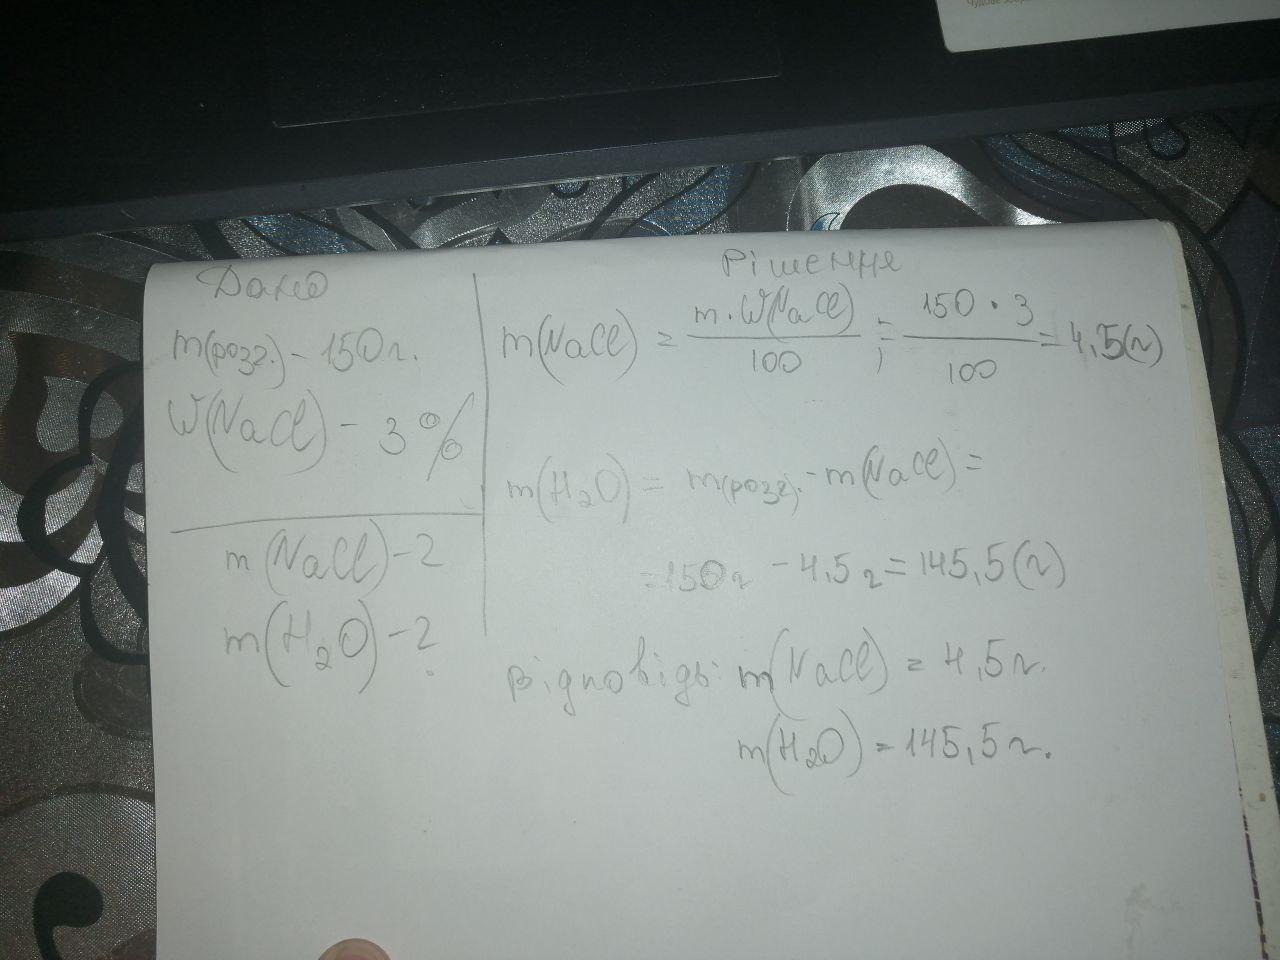 Дано
m(розг.) - 150 г.
W(NaCl) - 3 %
m(NaCl) - ?
m(H₂O) - ?
Рішення
m(NaCl) = m · W(NaCl) / 100 ; = 150 · 3 / 100 = 4,5(г)
m(H₂O) = m(розг). - m(NaCl) =
= 150 г - 4,5 г = 145,5 (г)
Відповідь: m(NaCl) = 4,5 г.
m(H₂O) = 145,5 г.